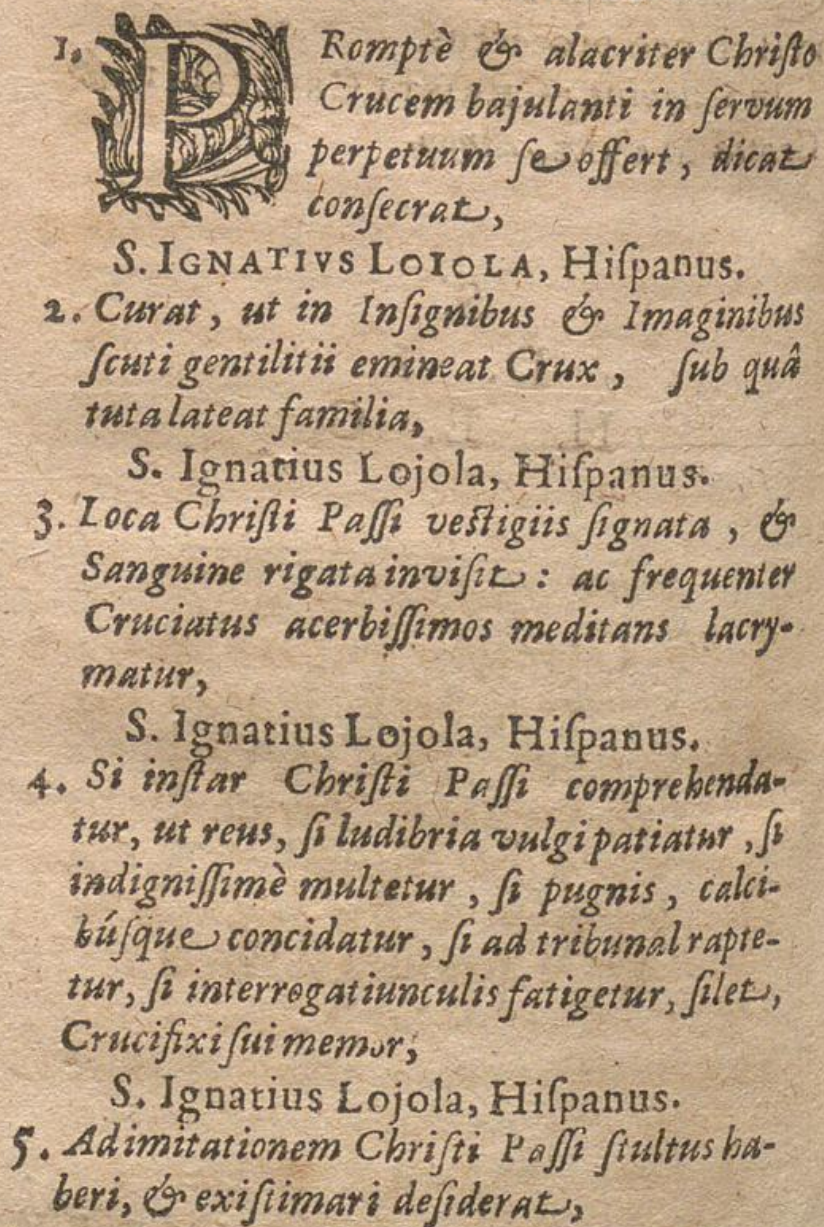 1. PRomptè & alacriter Chriſto
Crucem bajulanti in ſervum
perpetuum ſe offert, dicat
conſecrat,
S. IGNATIVS LOIOLA, Hiſpanus.
2. Curat, ut in Inſignibus & Imaginibus
ſcuti gentilitii emineat Crux, ſub quâ
tuta lateat familia,
S. Ignatius Lojola, Hiſpanus.
3. Loca Chriſti Paſſi veſtigiis ſignata, &
Sanguine rigata inviſit: ac frequenter
Cruciatus acerbiſſimos meditans lacry-
matur,
S. Ignatius Lojola, Hiſpanus.
4. Si inſtar Chriſti Paſſi comprehenda-
tur, ut reus, ſi ludibria vulgi patiatur, ſi
indigniſſimè multetur, ſi pugnis, calci-
búſque concidatur, ſi ad tribunal rapte-
tur, ſi interrogatiunculis fatigetur, ſilet,
Crucifixi ſui memor,
S. Ignatius Lojola, Hiſpanus.
5. Ad imitationem Chriſti Paſſi ſtultus ha-
beri, & exiſtimari deſiderat,